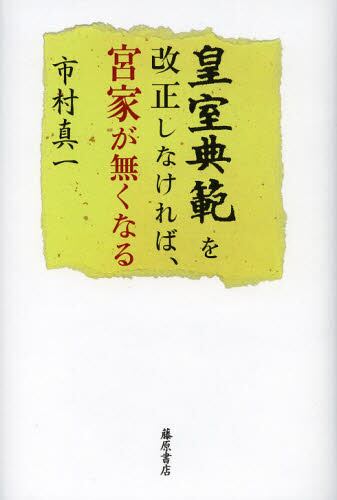 皇室典範を
改正しなければ、
宮家が無くなる
市村真一
藤原書店